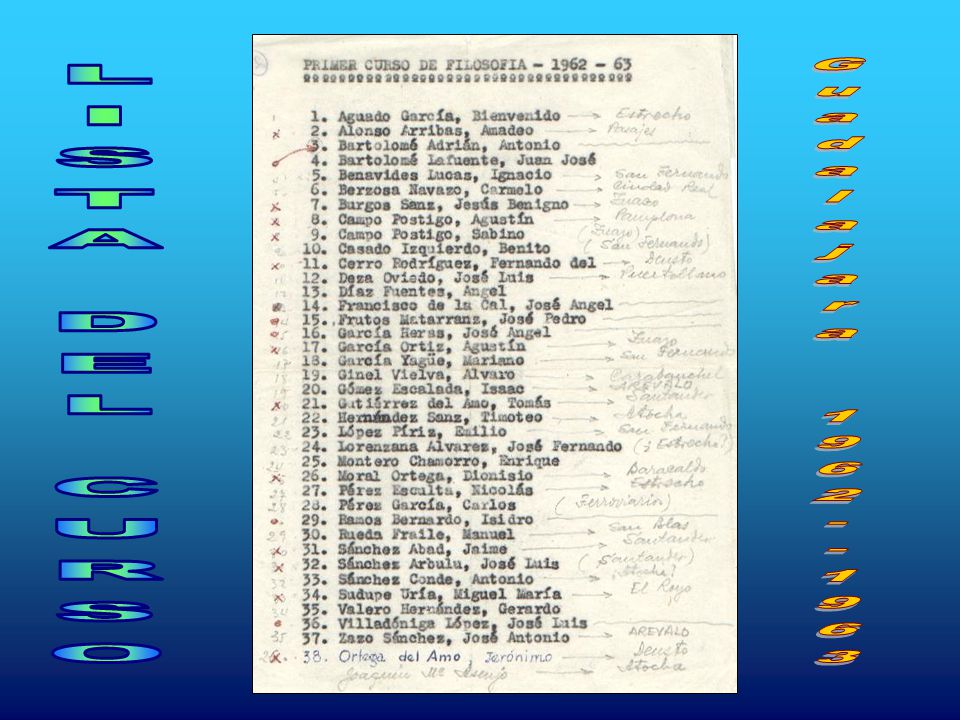 LISTA DEL CURSO
PRIMER CURSO DE FILOSOFIA - 1962 - 63
1. Aguado García, Bienvenido Estrecho
2. Alonso Arribas, Amadeo Pasajes
3. Bartolomé Adrián, Antonio
4. Bartolomé Lafuente, Juan José
5. Benavides Lucas, Ignacio San Fernando
6. Berzosa Navazo, Carmelo Ciudad Real
7. Burgos Sanz, Jesús Benigno
8. Campo Postigo, Agustín Pamplona
9. Campo Postigo, Sabino
10. Casado Izquierdo, Benito (San Fernando)
11. Cerro Rodríguez, Fernando del Deusto
12. Deza Oviedo, José Luis Puertollano
13. Díaz Fuentes, Angel
14. Francisco de la Cal, José Angel
15. Frutos Matarranz, José Pedro
16. García Heras, José Angel
17. García Ortiz, Agustín
18. García Yagüe, Mariano San Fernando
19. Ginel Vielva, Alvaro Carabanchel
20. Gómez Escalada, Isaac AREVALO
21. Gutiérrez del Amo, Tomás Santander
22. Hernández Sanz, Timoteo Atocha
23. López Píriz, Emilio San Fernando
24. Lorenzana Alvarez, José Fernando (¿Estrecho?)
25. Montero Chamorro, Enrique
26. Moral Ortega, Dionisio Baracaldo
27. Pérez Esculta, Nicolás Estrecho
28. Pérez García, Carlos (Ferroviarios)
29. Ramos Bernardo, Isidro
30. Rueda Fraile, Manuel San Blas
31. Sánchez Abad, Jaime Santander
32. Sánchez Arbulu, José Luis (Santander)
33. Sánchez Conde, Antonio ¿Atocha?
34. Sudupe Uría, Miguel María El Royo
35. Valero Hernández, Gerardo
36. Villadóniga López, José Luis
37. Zazo Sánchez, José Antonio AREVALO
38. Ortega del Amo, Jerónimo Deusto
Joaquín Mª Asenjo Atocha
Guadalajara 1962-1963